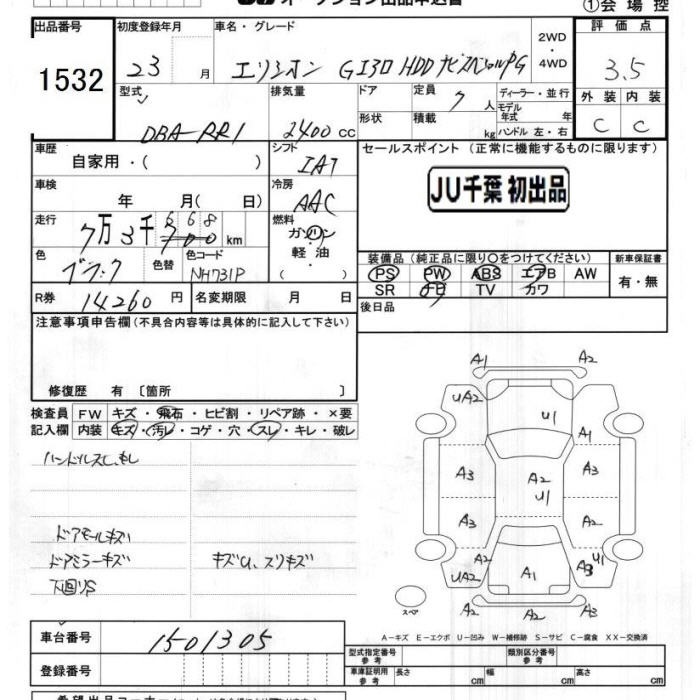 オークション出品申込書
①会場控
出品番号 初度登録年月 車名・グレード 2WD・4WD 評価点
1532 23 月 エリシオン G エアロ HDDナビスペシャルPG 3.5
型式 排気量 ドア 定員 7人 ディーラー・並行 外装 内装
DBA-RR1 2400cc 形状 積載 kg モデル年式 年 C C
ハンドル 左・右
車歴 シフト セールスポイント(正常に機能するものに限ります)
自家用・( ) IAT
車検 冷房 JU千葉 初出品
年 月( 日) AAC
走行 7万3千668 km 燃料
ガソリン・軽油
色 ブラック 色替 色コード NH731P
装備品(純正品に限り○をつけてください) 新車保証書
PS PW ABS エアB AW 有・無
SR ナビ TV カワ
R券 14260円 名変期限 月 日 後日品
注意事項申告欄(不具合内容等は具体的に記入して下さい)
修復歴 有 〔箇所 〕
検査員 FW キズ・飛石・ヒビ割・リペア跡・×要
記入欄 内装 キズ・汚レ・コゲ・穴・スレ・キレ・破レ
ハンドルスレ、
ドアモールキズ
ドアミラーキズ キズU、スリキズ
下回りS
A1 A2
UA2 U1 A1
A3 A2 U1 A3
A3 A2
UA2 A1 A3 U1
A2 A3
スペア
A-キズ E-エクボ U-凹み W-補修跡 S-サビ C-腐食 XX-交換済
車台番号 1501305
型式指定番号 参考 類別区分番号 参考
登録番号 車庫証明用 参考 長さ cm 幅 cm 高さ cm